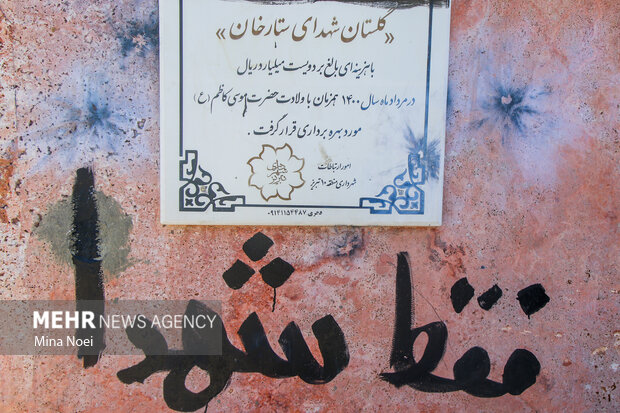 «گلستان شهدای ستارخان»
با هزینه ای بالغ بر دویست میلیارد ریال
در مرداد ماه سال ۱۴۰۰ همزمان با ولادت حضرت موسی کاظم (ع)
مورد بهره برداری قرار گرفت.
امور ارتباطات
شهرداری منطقه ۱۰ تبریز
۰۹۱۴۱۱۵۴۴۸۷
MEHR NEWS AGENCY
Mina Noei
فقط شهدا